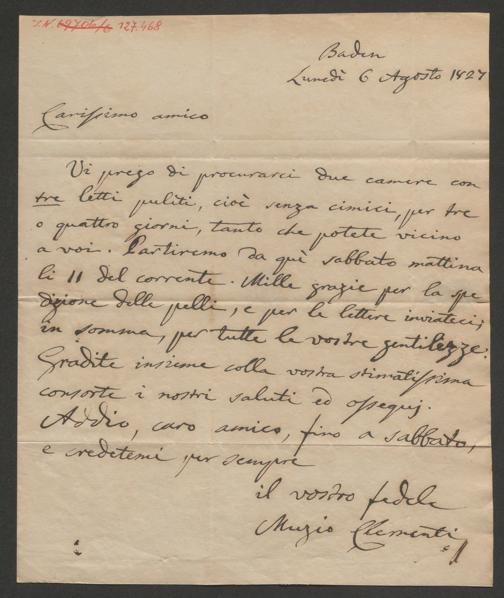 I.N. 69706/6 127.468
Baden
Lunedì 6 Agosto 1827
Carissimo amico
Vi prego di procurarci due camere con
tre letti puliti, cioè senza cimici, per tre
o quattro giorni, tanto che potete vicino
a voi. Partiremo da quì sabbato mattina
li 11 del corrente. Mille grazie per la spe
dizione delle pelli, e per le lettere inviateci;
in somma, per tutte le vostre gentilezze.
Gradite insieme colla vostra stimatissima
consorte i nostri saluti ed ossequj.
Addio, caro amico, fino a sabbato,
e credetemi per sempre
il vostro fedele
Muzio Clementi